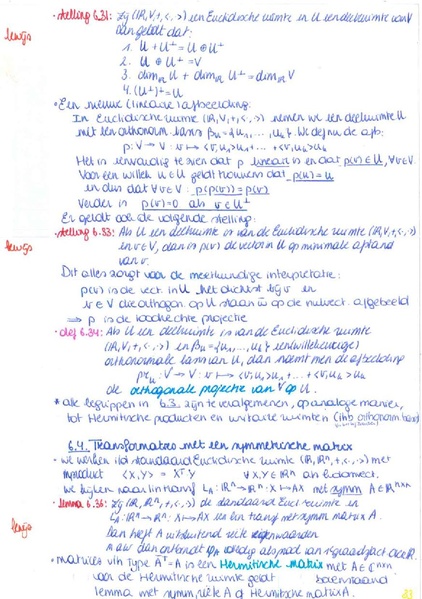 bewijs
• stelling 6.31: Zij (ℝ,V,+,<·,·>) een Euclidische ruimte en U een deelruimte van V
dan geldt dat:
1. U + U^⊥ = U ⊕ U^⊥
2. U ⊕ U^⊥ = V
3. dim_ℝ U + dim_ℝ U^⊥ = dim_ℝ V
4. (U^⊥)^⊥ = U
• Een nieuwe (lineaire) afbeelding:
In Euclidische ruimte (ℝ,V,+,<·,·>) nemen we een deelruimte U
met een orthonorm basis β_U = {u₁,...,u_k}. We def nu de afb:
p: V → V: v ↦ <v,u₁>u₁ + ... + <v,u_k>u_k
Het is eenvoudig te zien dat p lineair is en dat p(v) ∈ U, ∀v ∈ V.
Voor een willek u ∈ U geldt trouwens dat p(u) = u
en dus dat ∀v ∈ V: p(p(v)) = p(v)
Verder is p(v) = 0 als v ∈ U^⊥
Er geldt ook de volgende stelling:
bewijs
• stelling 6.33: Als U een deelruimte is van de Euclidische ruimte (ℝ,V,+,<·,·>)
en v ∈ V, dan is p(v) de vector in U op minimale afstand
van v.
Dit alles zorgt voor de meetkundige interpretatie:
p(v) is de vect. in U het dichtst bij v en
v ∈ V die orthog. op U staan op de nulvect. afgebeeld
⇒ p is loodrechte projectie
• def 6.34: Als U een deelruimte is van de Euclidische ruimte
(ℝ,V,+,<·,·>) en β_U = {u₁,...,u_k} een (willekeurige)
orthonormale basis van U, dan noemt men de afbeelding
pr_U: V → V: v ↦ <v,u₁>u₁ + ... + <v,u_k>u_k
de orthogonale projectie van V op U.
* alle begrippen in 6.3. zijn te veralgemenen, op analoge manier,
tot Hermitische producten en unitaire ruimten (ihb orthonorm basis)
6.4. Transformaties met een symmetrische matrix
• we werken in standaard Euclidische ruimte (ℝ,ℝⁿ,+,<·,·>) met
inproduct <X,Y> = Xᵀ·Y ∀X,Y ∈ ℝⁿ
We kijken naar lin transf L_A: ℝⁿ → ℝⁿ: X ↦ AX met symm A ∈ ℝⁿˣⁿ
bewijs
• lemma 6.36: Zij (ℝ,ℝⁿ,+,<·,·>) de standaard Eucl ruimte en
L_A: ℝⁿ → ℝⁿ: X ↦ AX een lin transf met symm matrix A.
Dan heeft A uitsluitend reële eigenwaarden
m.a.w. dan ontbindt φ_A volledig als prod van 1e graadsfact over ℝ.
• matrices v/h type Āᵀ = A is een Hermitische matrix met A ∈ ℂⁿˣⁿ
voor de Hermitische ruimte geldt bovenstaand
lemma met symm, reële A of Hermitische matrix A.
83